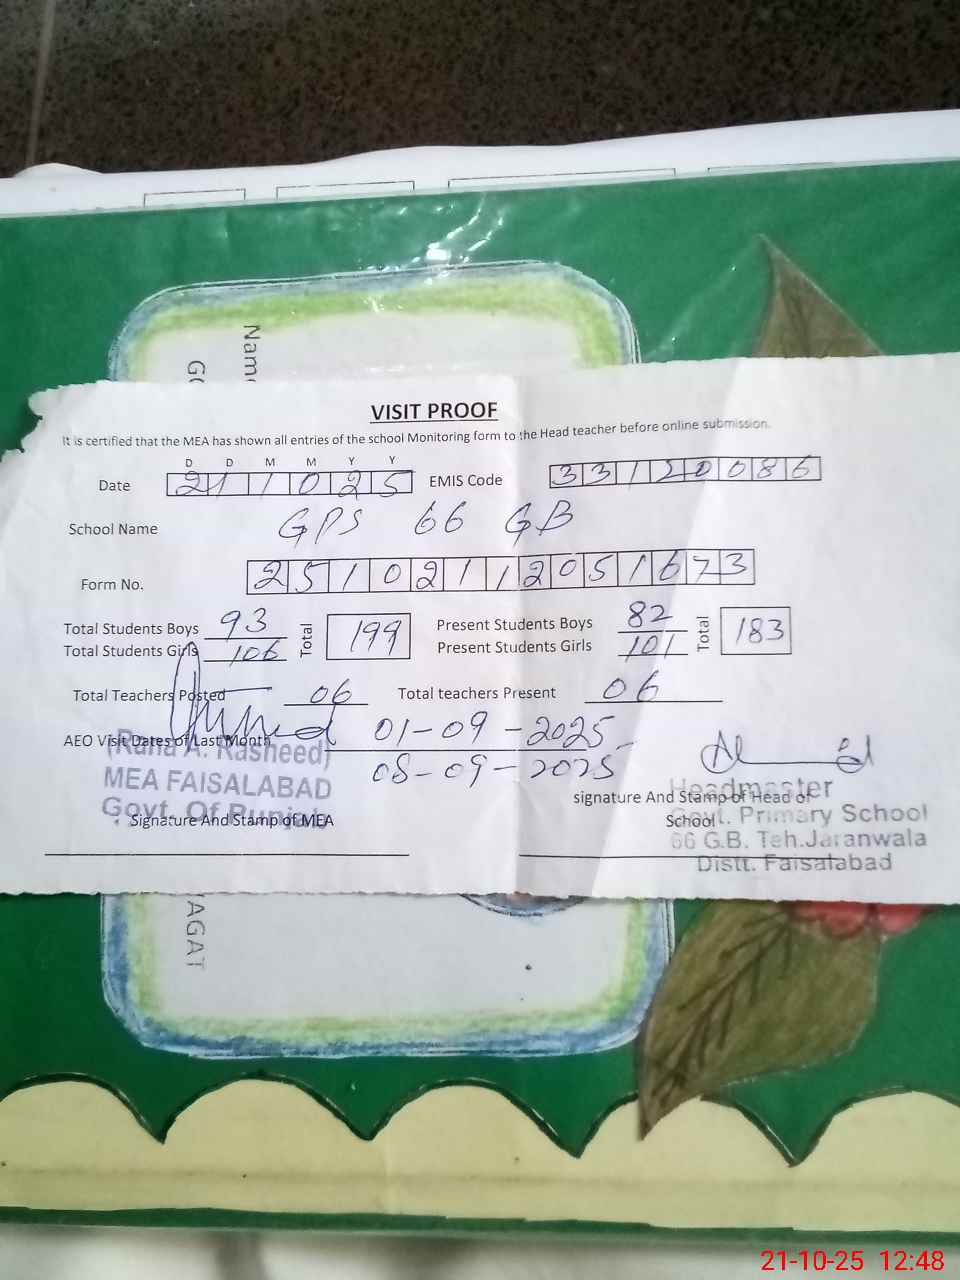 Name
GO
VISIT PROOF
It is certified that the MEA has shown all entries of the school Monitoring form to the Head teacher before online submission.
D D M M Y Y
Date 211025 EMIS Code 33120086
School Name GPS 66 GB
Form No. 25102112051673
Total Students Boys 93 Total 199 Present Students Boys 82 Total 183
Total Students Girls 106 Present Students Girls 101
Total Teachers Posted 06 Total teachers Present 06
AEO Visit Dates of Last Month 01-09-2025
08-09-2025
(Rana A. Rasheed)
MEA FAISALABAD
Govt. Of Punjab
Signature And Stamp of MEA
signature And Stamp of Head of
School
Headmaster
Govt. Primary School
66 G.B. Teh.Jaranwala
Distt. Faisalabad
AGAT
21-10-25 12:48